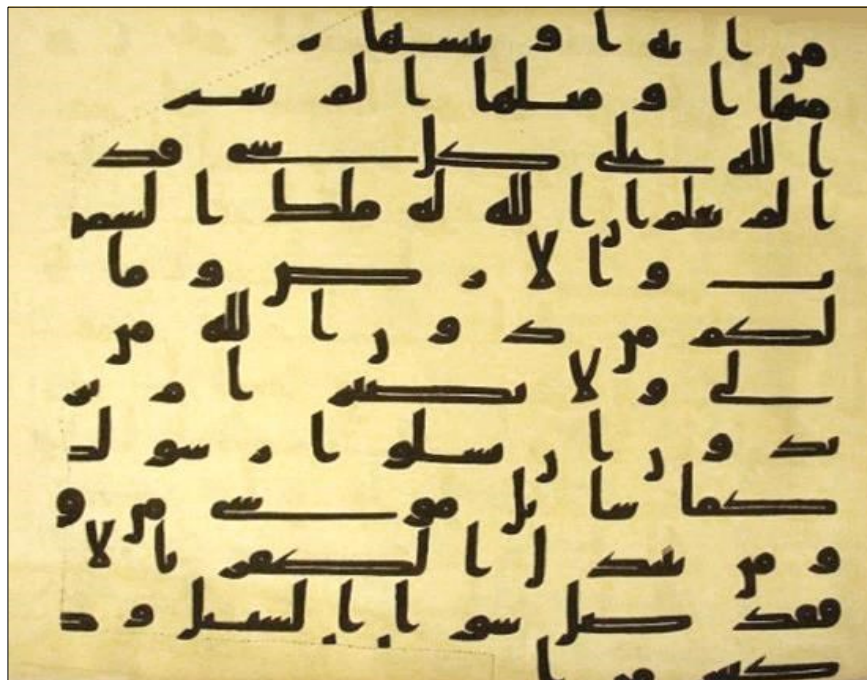 من ايه او ننسها ن
منها او مثلها الم تع
الله على كل شى قد
الم تعلم ان الله له ملك السمو
ت والارض وما
لكم من دون الله من
لى ولا نصير ام تر
يد ون ان تسلوا رسو لك
كما سيل موسى من ق
و من يتبد ل الكفر بالا
فقد ضل سوا السبيل ود
كثير من ا